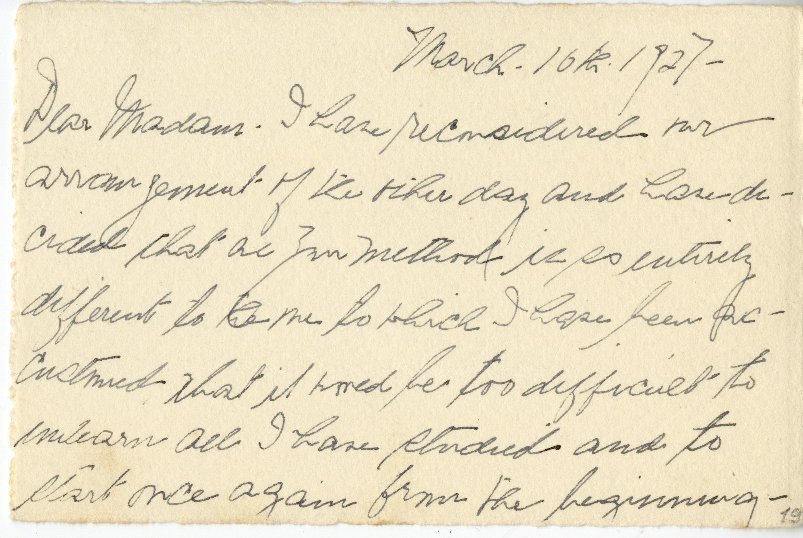 March. 16th. 1927-
Dear Madam. I have reconsidered our
arrangement of the other day and have de-
cided that as your method is so entirely
different to the one to which I have been ac-
customed that it would be too difficult to
unlearn all I have studied and to
start once again from the beginning-
19